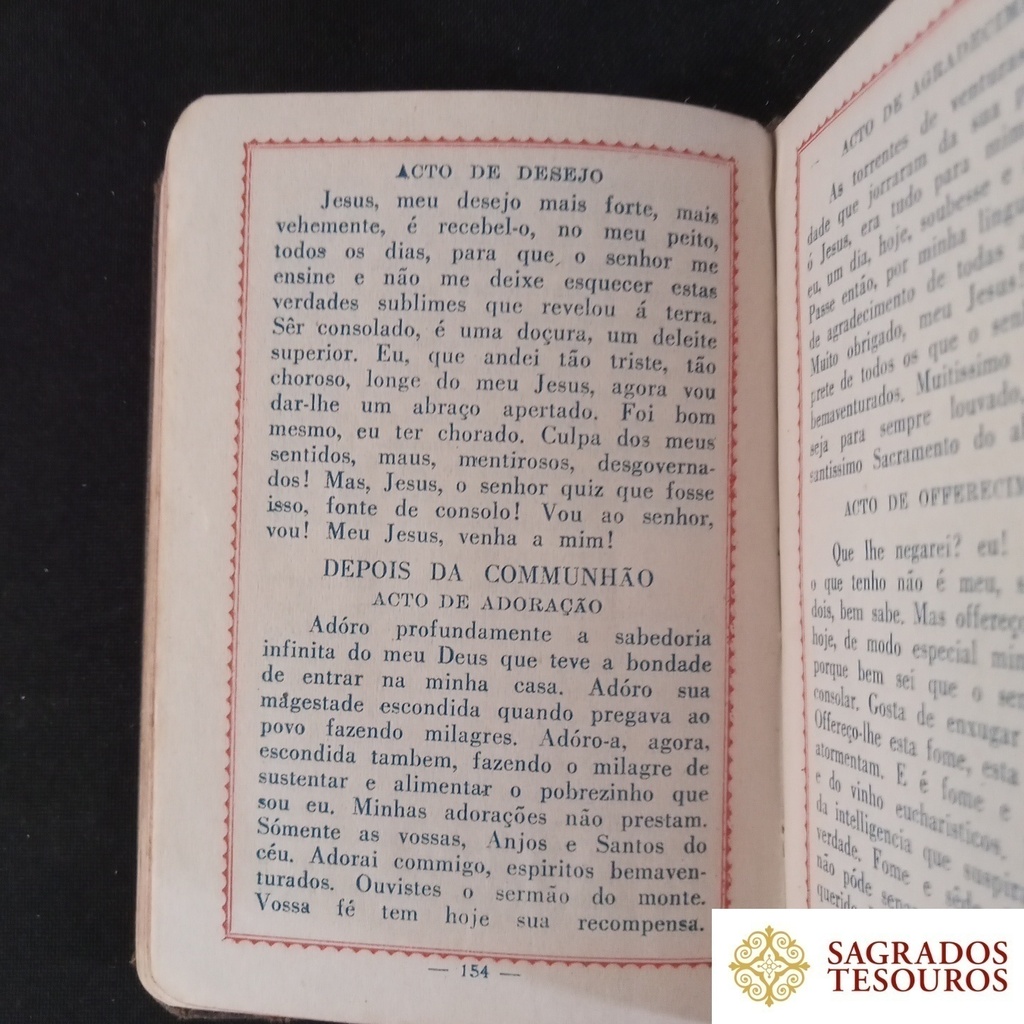 ACTO DE DESEJO
Jesus, meu desejo mais forte, mais
vehemente, é recebel-o, no meu peito,
todos os dias, para que o senhor me
ensine e não me deixe esquecer estas
verdades sublimes que revelou á terra.
Sêr consolado, é uma doçura, um deleite
superior. Eu, que andei tão triste, tão
choroso, longe do meu Jesus, agora vou
dar-lhe um abraço apertado. Foi bom
mesmo, eu ter chorado. Culpa dos meus
sentidos, maus, mentirosos, desgoverna-
dos! Mas, Jesus, o senhor quiz que fosse
isso, fonte de consolo! Vou ao senhor,
vou! Meu Jesus, venha a mim!
DEPOIS DA COMMUNHÃO
ACTO DE ADORAÇÃO
Adóro profundamente a sabedoria
infinita do meu Deus que teve a bondade
de entrar na minha casa. Adóro sua
mágestade escondida quando pregava ao
povo fazendo milagres. Adóro-a, agora,
escondida tambem, fazendo o milagre de
sustentar e alimentar o pobrezinho que
sou eu. Minhas adorações não prestam.
Sómente as vossas, Anjos e Santos do
céu. Adorai commigo, espiritos bemaven-
turados. Ouvistes o sermão do monte.
Vossa fé tem hoje sua recompensa.
— 154 —
ACTO DE
As torrentes de venturas
dade que jorraram da sua
ó Jesus, era tudo para mim
eu, um dia, hoje, soubesse e
Passe então, por minha lingu
de agradecimento de todas
Muito obrigado, meu Jesus!
prete de todos os que o sen
bemaventurados. Muitissimo
seja para sempre louvado,
santissimo Sacramento do al
ACTO DE OFFERECIM
Que lhe negarei? eu!
o que tenho não é meu,
dois, bem sabe. Mas offereço
hoje, de modo especial min
porque bem sei que o sen
consolar. Gosta de enxugar
Offereço-lhe esta fome, esta
atormentam. E é fome e
e do vinho eucharisticos.
da intelligencia que suspira
verdade. Fome e sêde
não póde
querido
SAGRADOS
TESOUROS